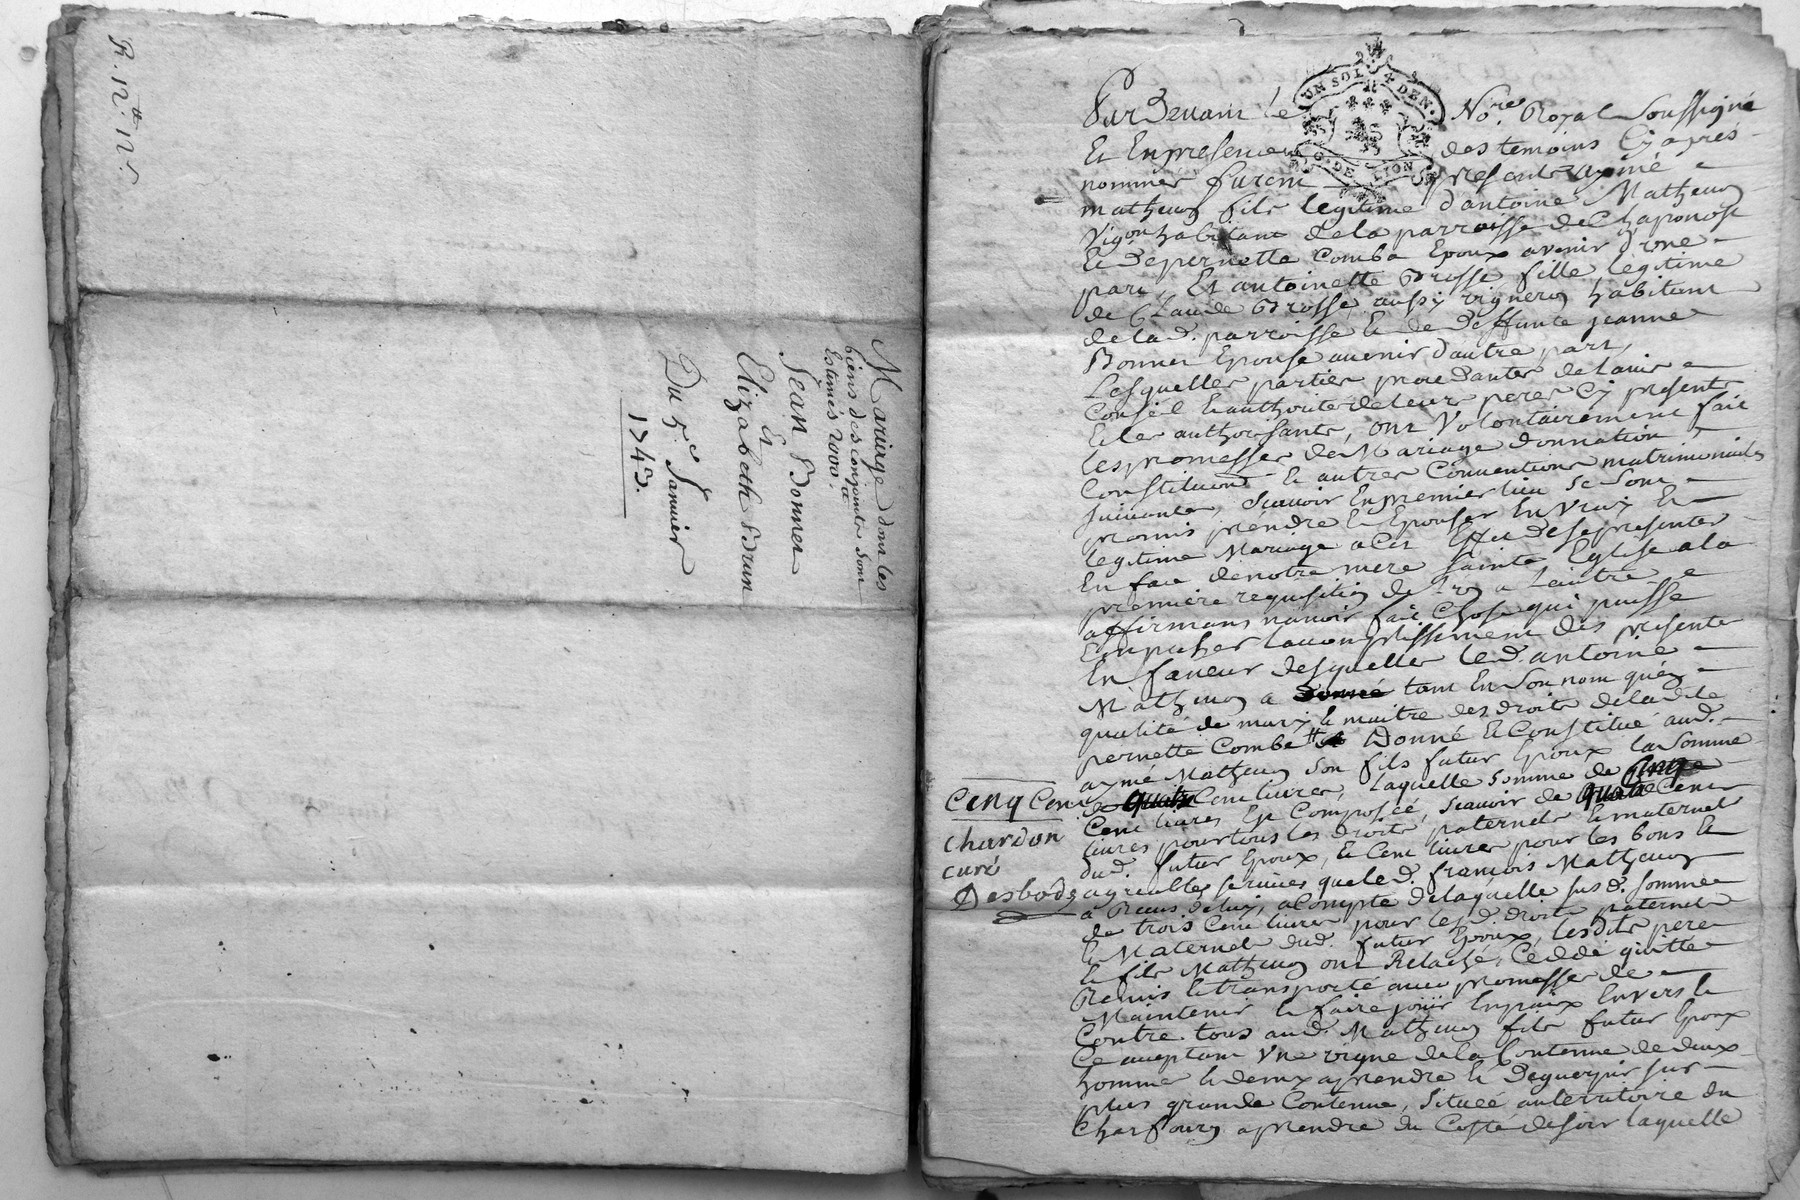 R. 12tt 12s.
Mariage dont les
biens des conjoints sont
Estimés 2000tt.
Jean Bonnet
Et
Elizabeth Brun
Du 5e. Janvier
1743.
UN SOL 4 DEN.
G. DE LION
Pardevant le No.re Royal Soussigné
Et En presence des temoins Cy apres
nommés furent presents aymé
mathevon fils legitime d'antoine Mathevon
vigon habitant de la parroisse de Chaponost
Et De pernette Combe Epoux avenir d'une
part, Et antoinette Brosse fille legitime
de Claude Brosse, aussy vigneron habitant
de lad. parroisse Et de Deffunte jeanne
Bonnet Epouse avenir d'autre part,
Lesquelles parties procedantes de l'avis
Conseil Et authorité de leurs peres Cy presents
Et les authorisants, ont Volontairement fait
les promesses de Mariage donnation,
Constitution Et autres Conventions matrimoniales
suivantes, Scavoir En premier lieu se sont
promis prendre Et Epouser En Vray Et
legitime Mariage a Cet Effet de se presenter
En face de notre mere sainte Eglise a la
premiere requisition de L'un a L'autre
affirmans n'avoir fait Chose qui puisse
Empecher l'accomplissement des presentes
En faveur desquelles led. antoine
Mathevon a donné tant En Son nom qu'en
qualité de mary Et maitre des droits de la dite
pernette Combe Donné Et Constitué aud.
aymé Mathevon son fils futur Epoux la Somme
Cinq Cent
de quatre Cent livres, laquelle somme de Cinq
Chardon
curé
Desbods
Cent livres Est Composée, scavoir de quatre Cent
livres pour tous les droits paternels Et maternels
dud. futur Epoux, Et Cent livres pour les bons Et
agreables services que led. françois Mathevon
a Receus de luy, a Compte de laquelle susd. somme
de trois Cent livres pour lesd. droits paternels
Et Maternels dud. futur Epoux, lesdits pere
Et fils Mathevon ont Relaché, Ceddé quitté
Remis Et transporté avec promesses de
Maintenir Et faire joüir En paix Envers Et
Contre tous aud. Mathevon fils futur Epoux
Ce acceptant Une vigne de la Contenue de deux
hommé Et demy a prendre Et Deguerpir sur
plus grande Contenue, située au territoire du
a prendre du Costé de soir laquelle